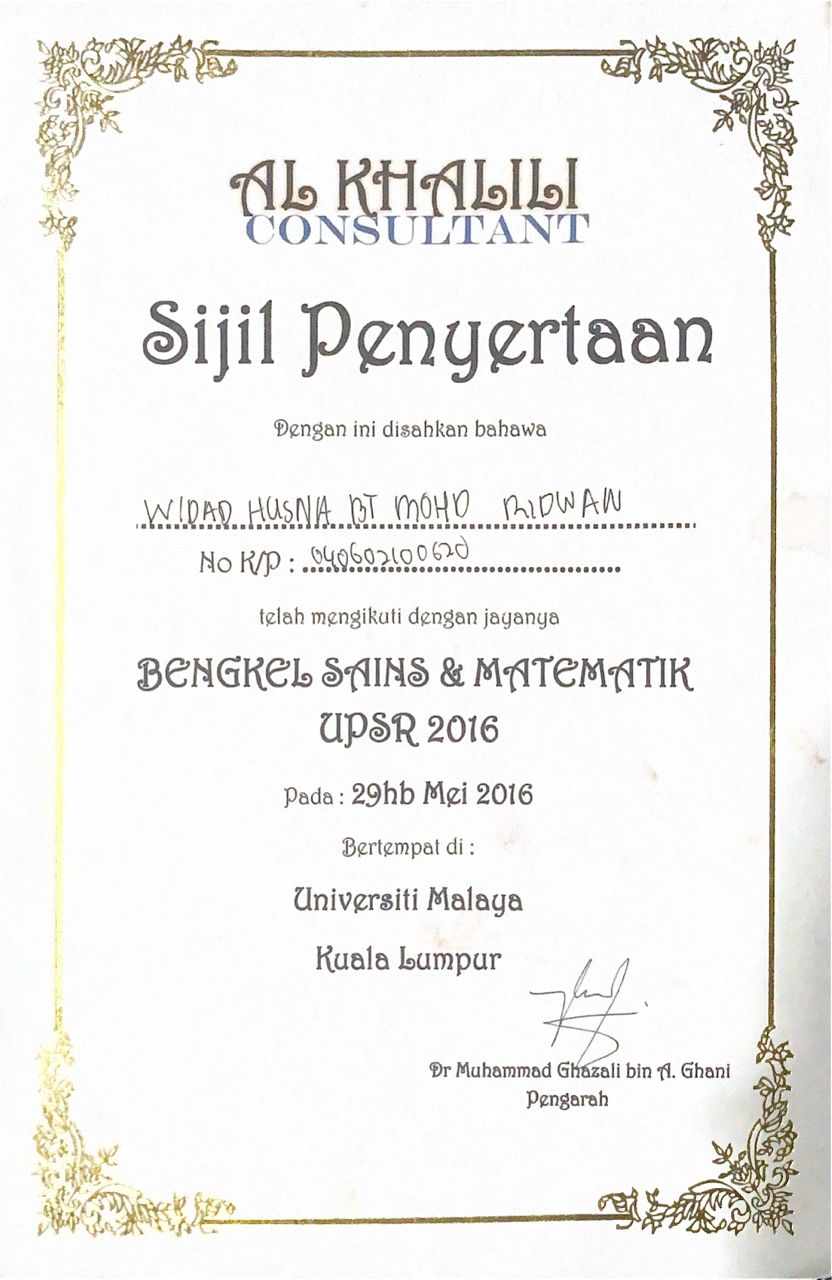 AL KHALILI
CONSULTANT
Sijil Penyertaan
Dengan ini disahkan bahawa
WIDAD HUSNA BT MOHD RIDWAN
No K/P : 040602100620
telah mengikuti dengan jayanya
BENGKEL SAINS & MATEMATIK
UPSR 2016
Pada : 29hb Mei 2016
Bertempat di :
Universiti Malaya
Kuala Lumpur
Dr Muhammad Ghazali bin A. Ghani
Pengarah